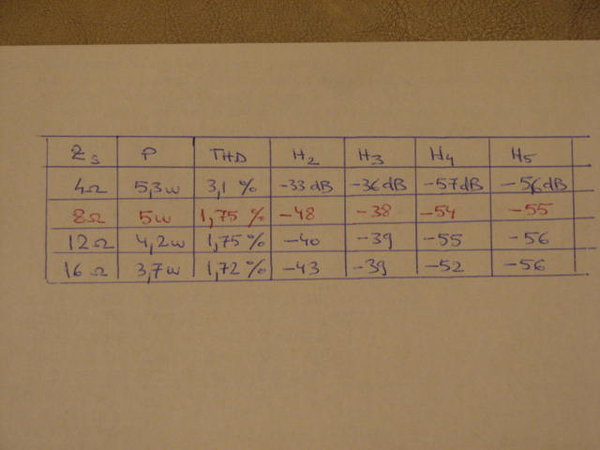 Zs P THD H2 H3 H4 H5
4Ω 5,3w 3,1 % -33 dB -36 dB -57 dB -56 dB
8Ω 5w 1,75 % -48 -38 -54 -55
12Ω 4,2w 1,75 % -40 -39 -55 -56
16Ω 3,7w 1,72 % -43 -39 -52 -56